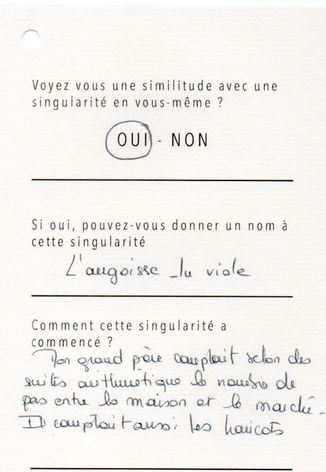 Voyez vous une similitude avec une
singularité en vous-même ?
OUI - NON
Si oui, pouvez-vous donner un nom à
cette singularité
L'angoisse du vide
Comment cette singularité a
commencé ?
Mon grand père comptait selon des
suites arithmétique le nombre de
pas entre la maison et le marché.
Il comptait aussi les haricots